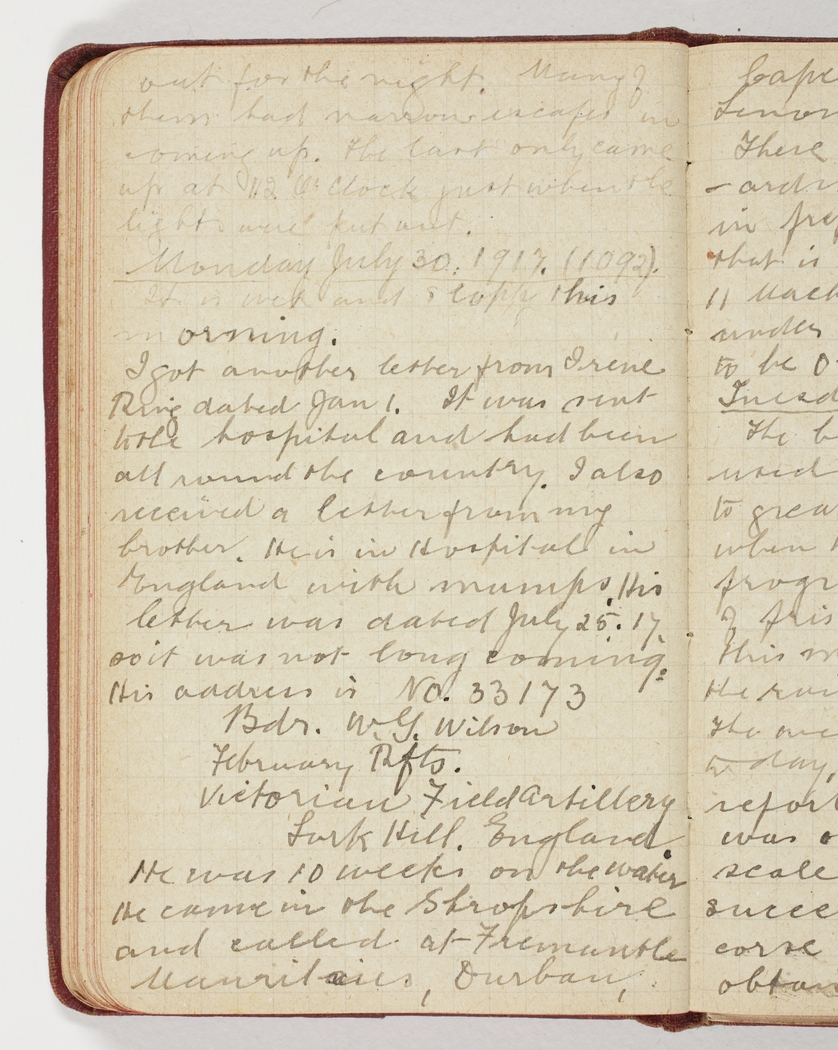 out for the night. Many of
them had narrow escapes in
coming up. The last only came
up at 12 O'Clock just when the
lights were put out.
Monday July 30. 1917. (1092).
It is wet and slopp this
morning.
I got another letter from Irene
Ring dated Jan 1. It was sent
to the hospital and had been
all round the country. I also
received a letter from my
brother. He is in Hospital in
England with mumps. His
letter was dated July 25. 17
so it was not long coming.
His address is No. 33173
Bdr. W. G. Wilson
February Rfts.
Victorian Field Artillery
Lark Hill. England.
He was 10 weeks on the water
He came in the Shropshire
and called at Fremantle
Mauritius, Durban,
Cape
There
- ards
in
that is
11
under
to be
Tuesd
The b
used
to grea
when
progr
of
this m
The
The
to day,
report
was
scale
succe
corse
obtain